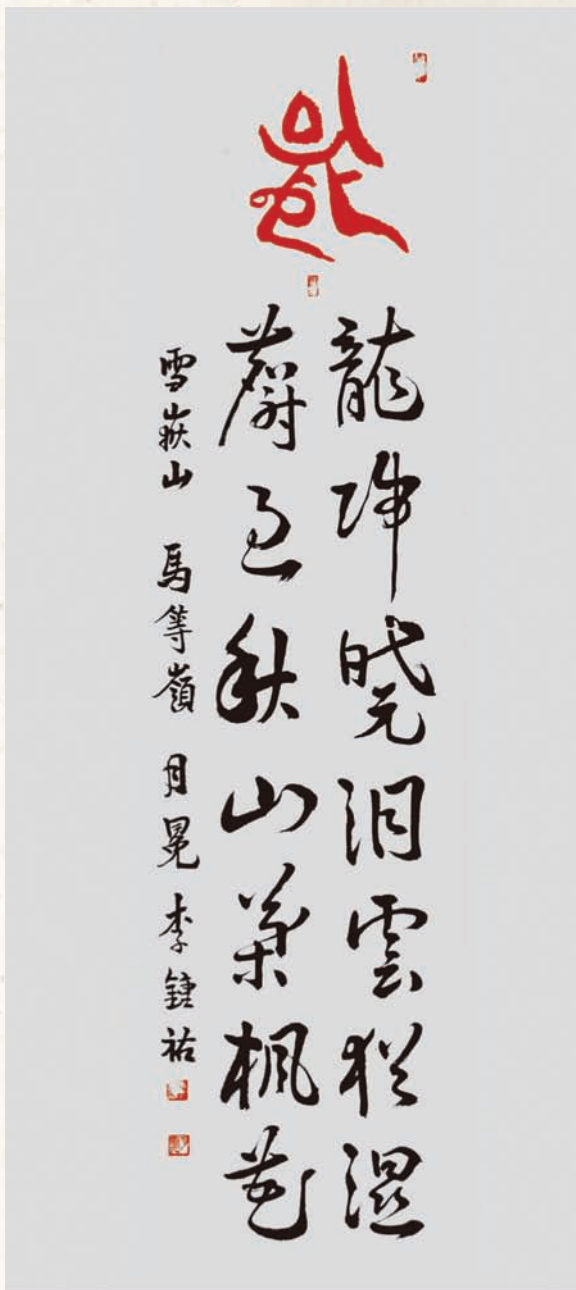 龍歸曉洞雲猶濕
麝過秋山葉楓花
雪嶽山 馬等嶺 月晃 李鍾祐